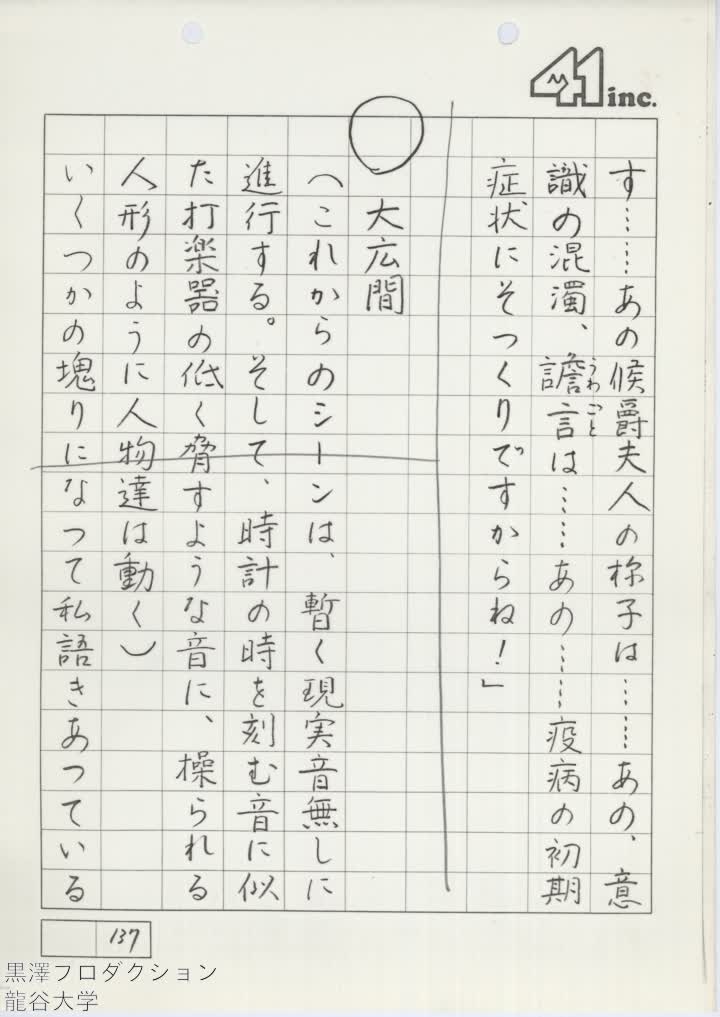 41 inc.
す……あの候爵夫人の様子は……あの、意
識の混濁、譫言は……あの……疫病の初期
うわごと
症状にそつくりですからね！」
大広間
（これからのシーンは、暫く現実音無しに
進行する。そして、時計の時を刻む音に似
た打楽器の低く脅すような音に、操られる
人形のように人物達は動く）
いくつかの塊りになつて私語きあつている
137
黒澤プロダクション
龍谷大学